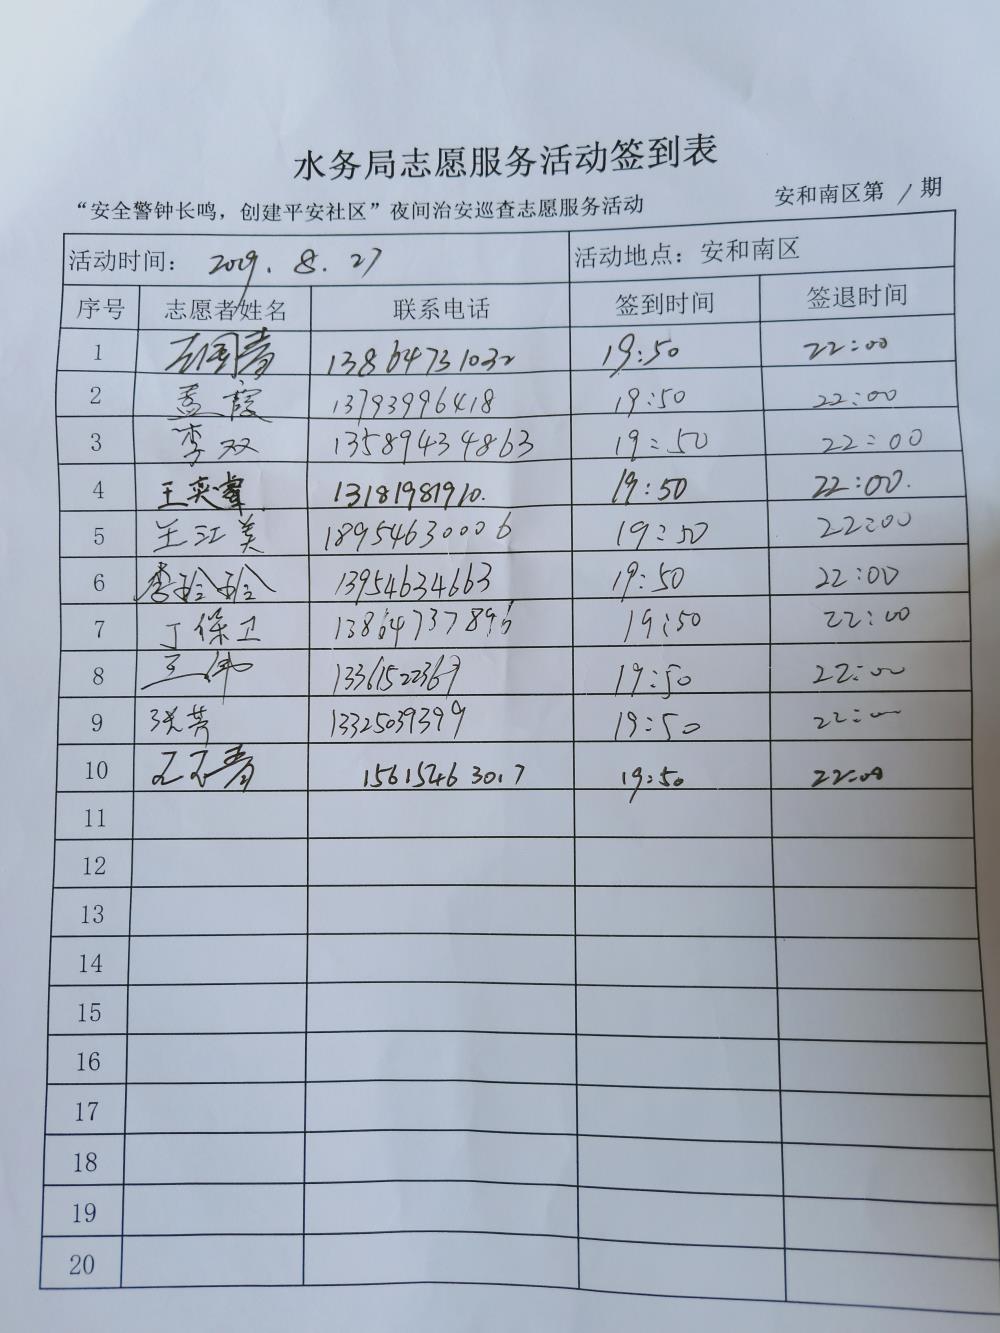 水务局志愿服务活动签到表
“安全警钟长鸣，创建平安社区”夜间治安巡查志愿服务活动 安和南区第 1 期
活动时间： 2019.8.27 活动地点：安和南区
序号 志愿者姓名 联系电话 签到时间 签退时间
1 13864731032 19:50 22:00
2 孟霞 13793996418 19:50 22:00
3 李双 13589434863 19:50 22:00
4 王奕 13181981910. 19:50 22:00.
5 王江美 18954630006 19:50 22:00
6 李玲玲 13954634663 19:50 22:00
7 丁保卫 13864737896 19:50 22:00
8 王伟 13361522367 19:50 22:00
9 张芳 13325039399 19:50 22:00
10 15615463017 19:50 22:00
11
12
13
14
15
16
17
18
19
20